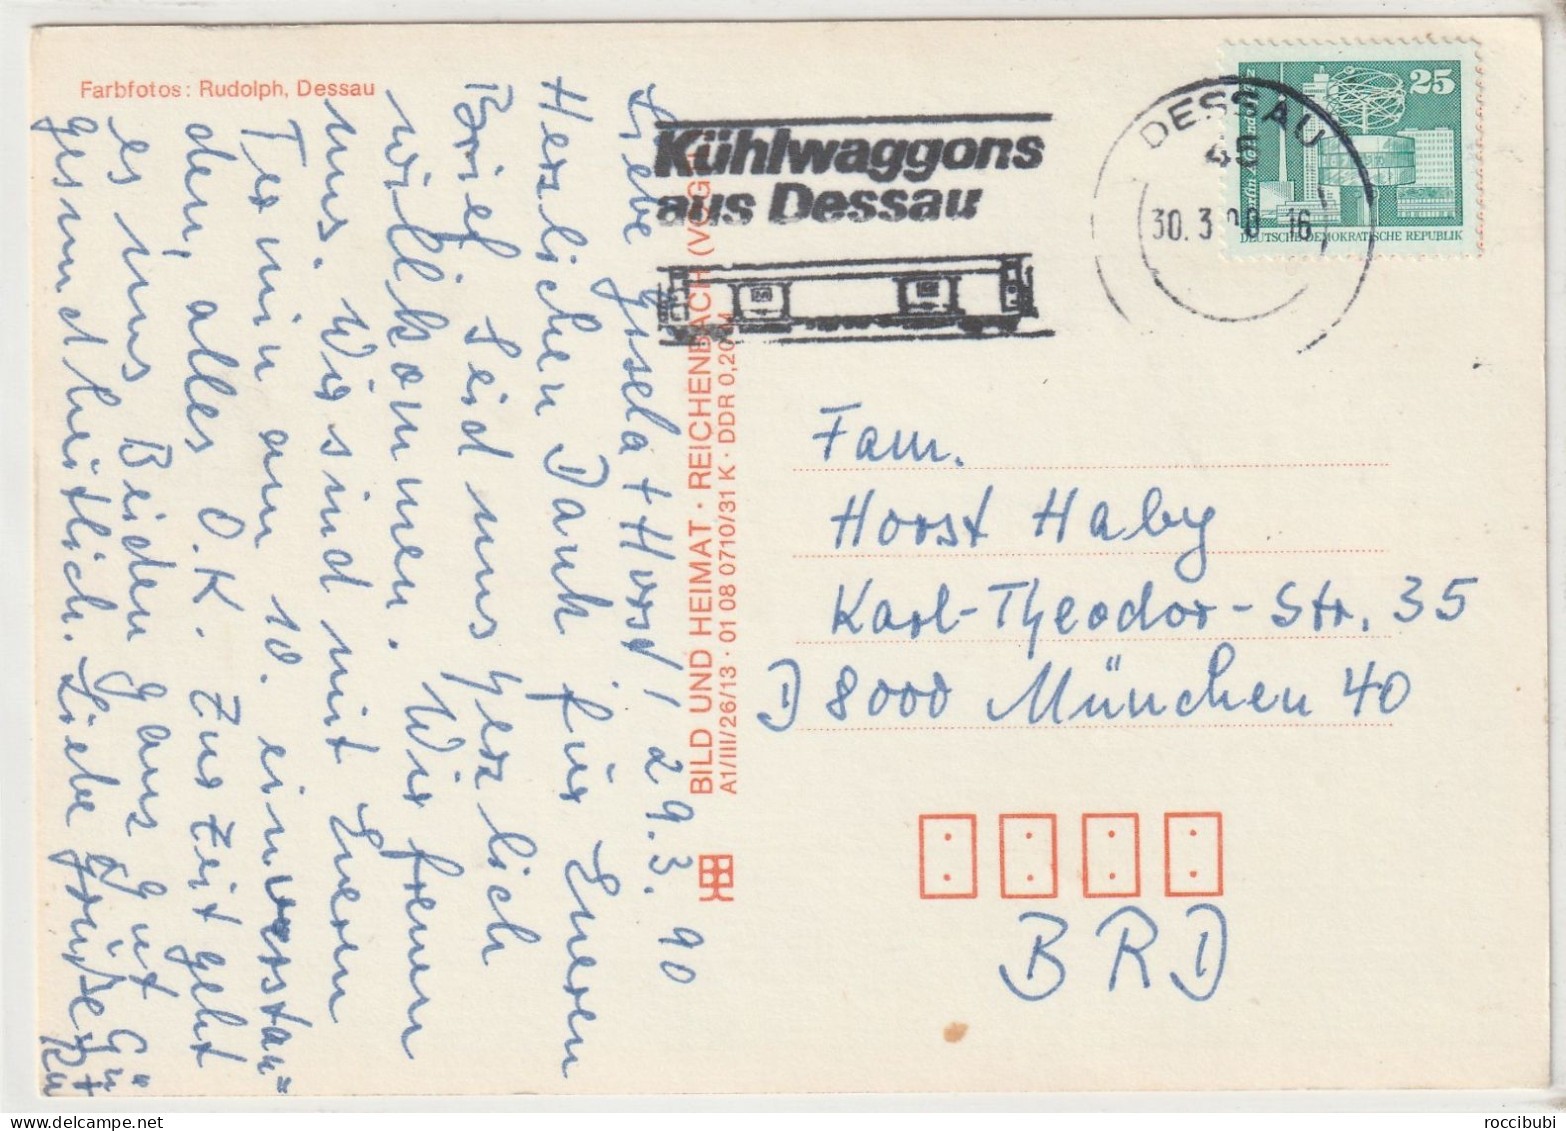 Farbfotos: Rudolph, Dessau
Liebe Gisela + Horst! 29.3.90
Herzlichen Dank für Eueren
Brief. Seid uns herzlich
willkommen. Wir freuen
uns. Wir sind mit Euerem
Termin am 10. einverstan=
den, alles O.K. Zur Zeit geht
es uns Beiden ganz gut
gesundheitlich. Liebe Grüße
BILD UND HEIMAT · REICHENBACH (VOGTL
A1/III/26/13 · 01 08 0710/31 K · DDR 0,20 M
Kühlwaggons
aus Dessau
DESSAU
45
30. 3. 90 16
25
DEUTSCHE DEMOKRATISCHE REPUBLIK
Fam.
Horst Haby
Karl-Theodor-Str. 35
D 8000 München 40
BRD
roccibubi